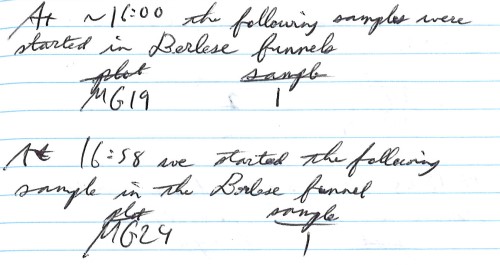 At ~16:00 the following samples were
started in Berlese funnels
plot sample
MG19 1
At 16:58 we started the following
sample in the Berlese funnel
plot sample
MG24 1